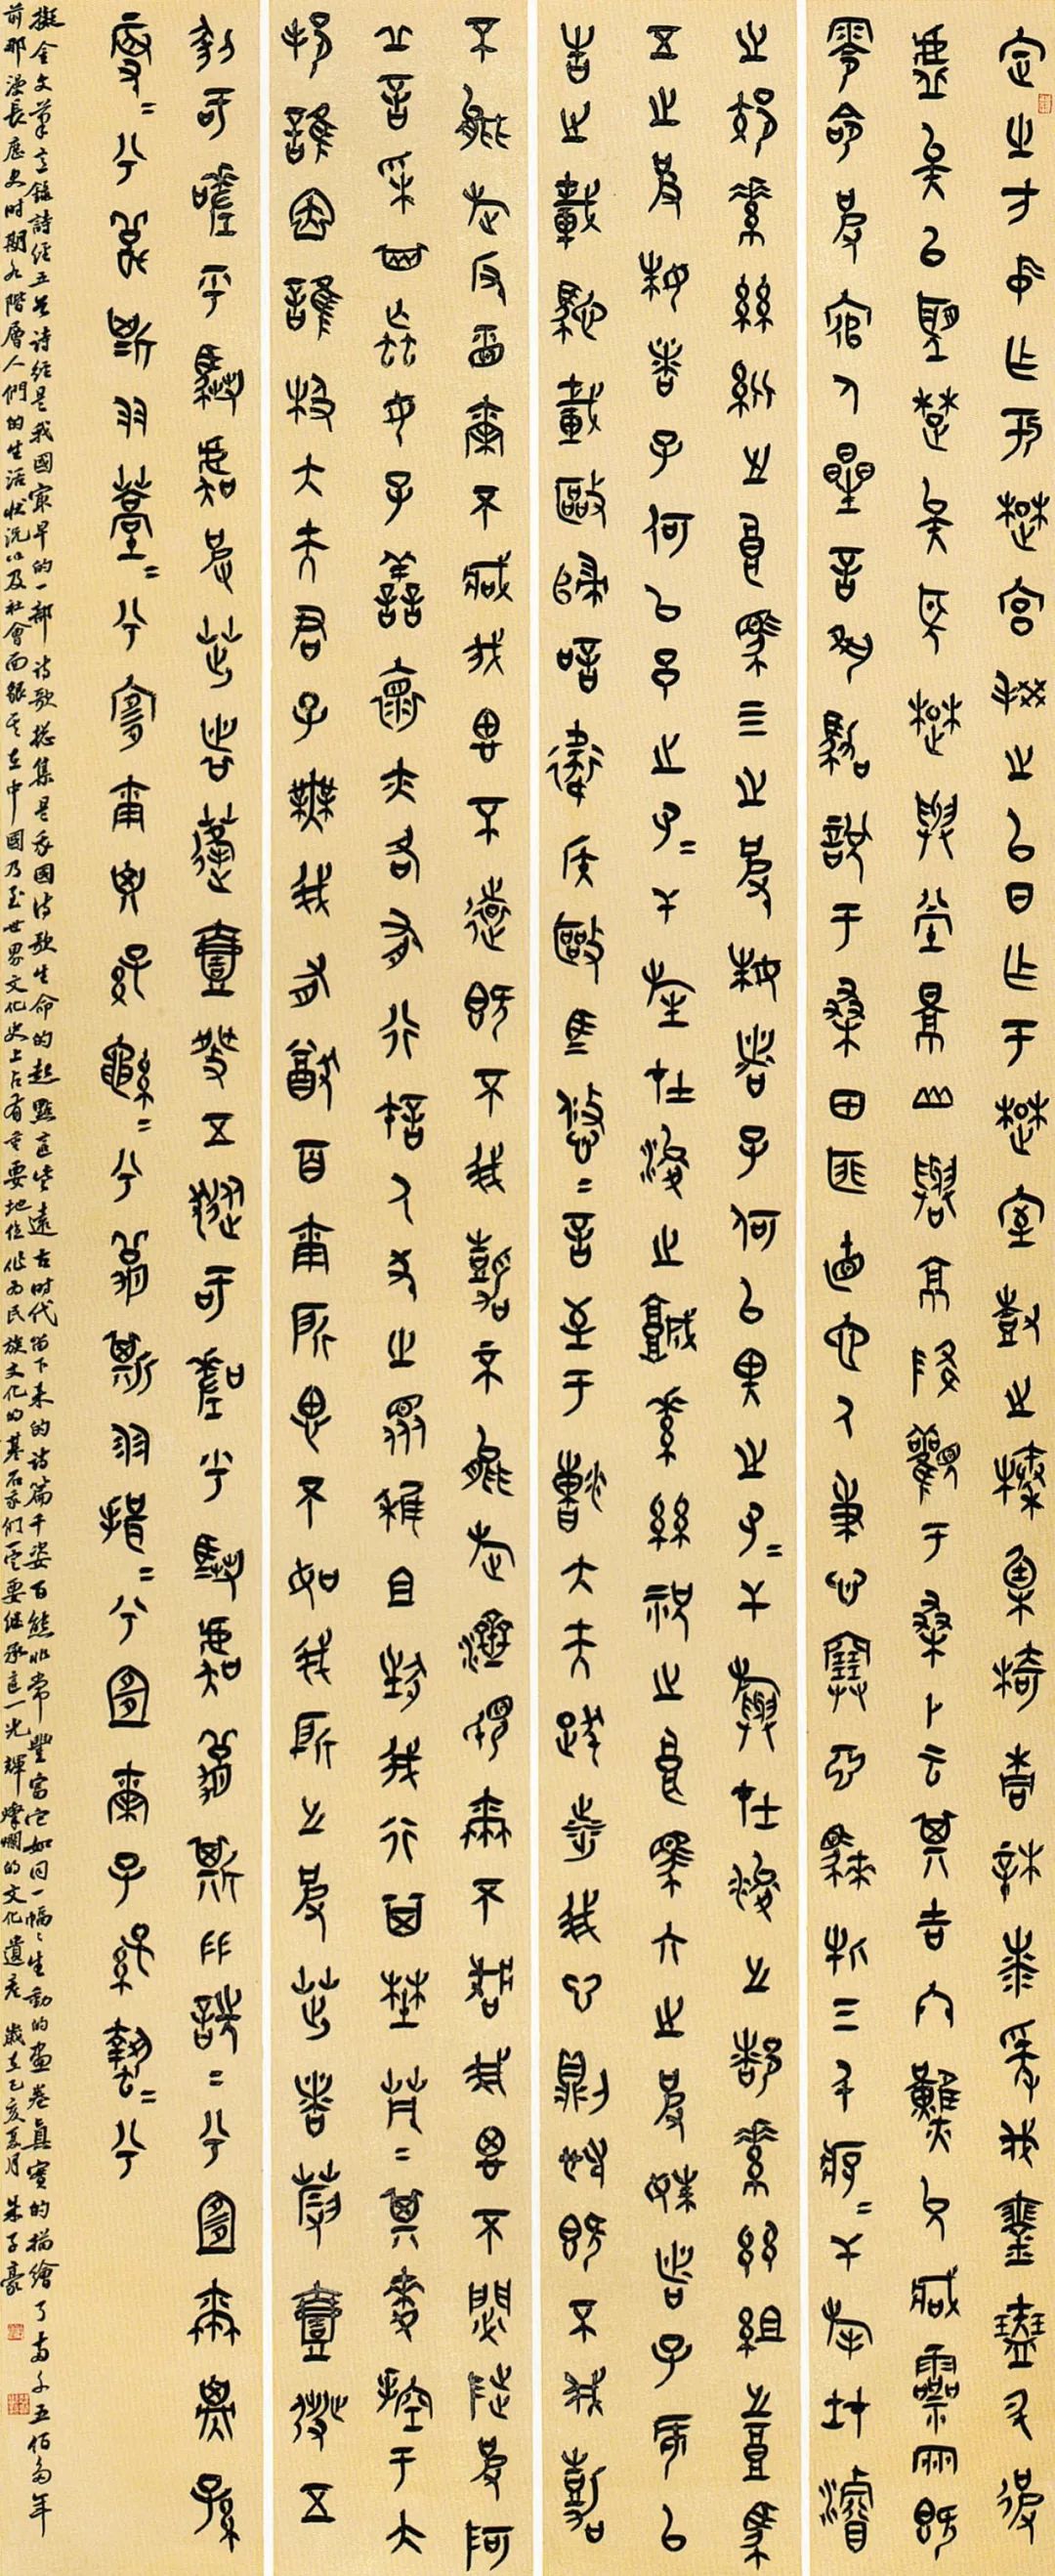 定之方中作于楚宮揆之以日作于楚室樹之榛栗椅桐梓漆爰伐琴瑟升彼
虛矣以望楚矣望楚與堂景山與京降觀于桑卜云其吉終然允臧靈雨既
零命彼倌人星言夙駕說于桑田匪直也人秉心塞淵騋牝三千孑=干旄在浚
之郊素絲紕之良馬四之彼姝者子何以畀之孑=干旟在浚之都素絲組之良馬
五之彼姝者子何以予之孑=干旌在浚之城素絲祝之良馬六之彼姝者子何以
告之載馳載驅歸唁衛侯驅馬悠=言至于漕大夫跋涉我心則憂既不我嘉
不能旋反視爾不臧我思不遠既不我嘉不能旋濟視爾不臧我思不閟陟彼阿
丘言采其蝱女子善懷亦各有行許人尤之眾穉且狂我行其野芃=其麥控于大
邦誰因誰極大夫君子無我有尤百爾所思不如我所之彼茁者葭壹發五
豝于嗟乎騶虞彼茁者蓬壹發五豵于嗟乎騶虞螽斯羽詵=兮宜爾子孫
振=兮螽斯羽薨=兮宜爾子孫繩=兮螽斯羽揖=兮宜爾子孫蟄=兮
擬金文筆意錄詩經五首詩經是我國最早的一部詩歌總集是我國詩歌生命的起點這些遠古時代留下來的詩篇千姿百態非常豐富它如同一幅=生動的畫卷真實的描繪了兩千五佰多年
前那漫長歷史時期各階層人們的生活狀況以及社會面貌其在中國乃至世界文化史上占有重要地位作為民族文化的基石我們一定要繼承這一光輝燦爛的文化遺產 歲在己亥夏月 朱子豪